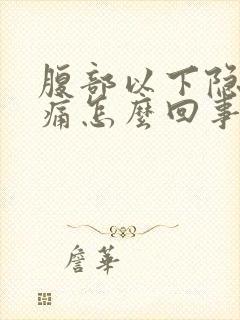 腹部以下隐
痛怎麼回事
詹華